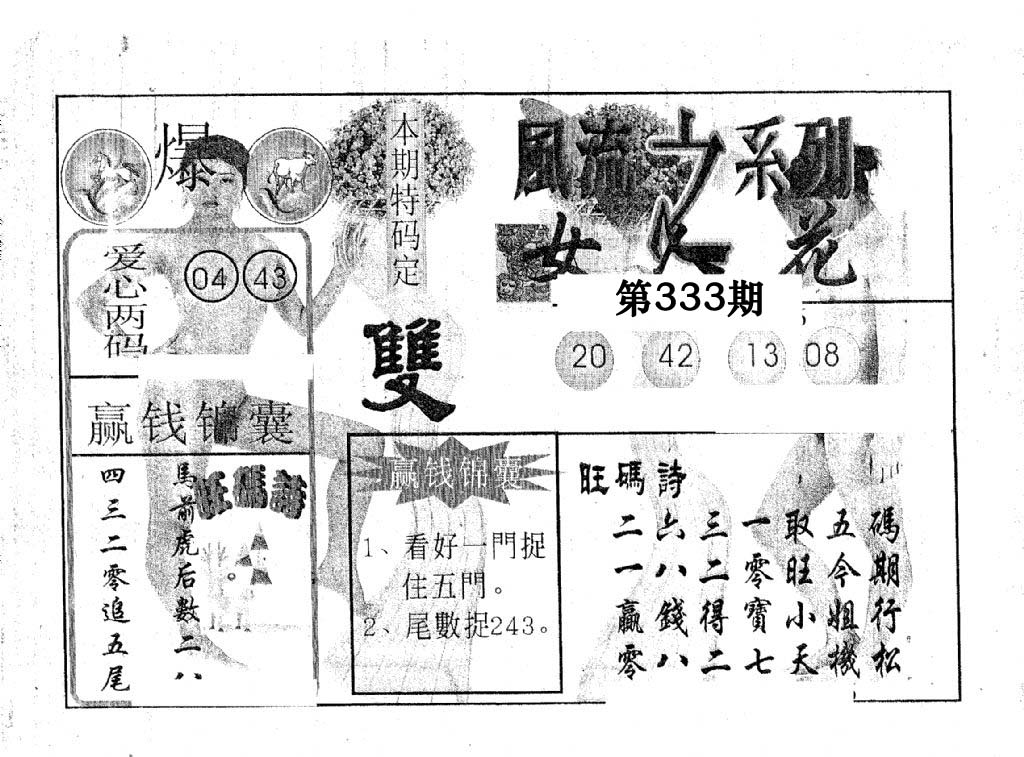 爆
爱心两码
04 43
赢钱锦囊
馬前虎后数二八
四三二零追五尾
旺碼詩
本期特码定
雙
風流女人花
系列
第333期
20 42 13 08
赢钱锦囊
1、看好一門捉
住五門。
2、尾數捉243。
旺碼詩
碼期行松
五今姐機
取旺小天
一零寶七
三二得二
六八錢八
二一贏零